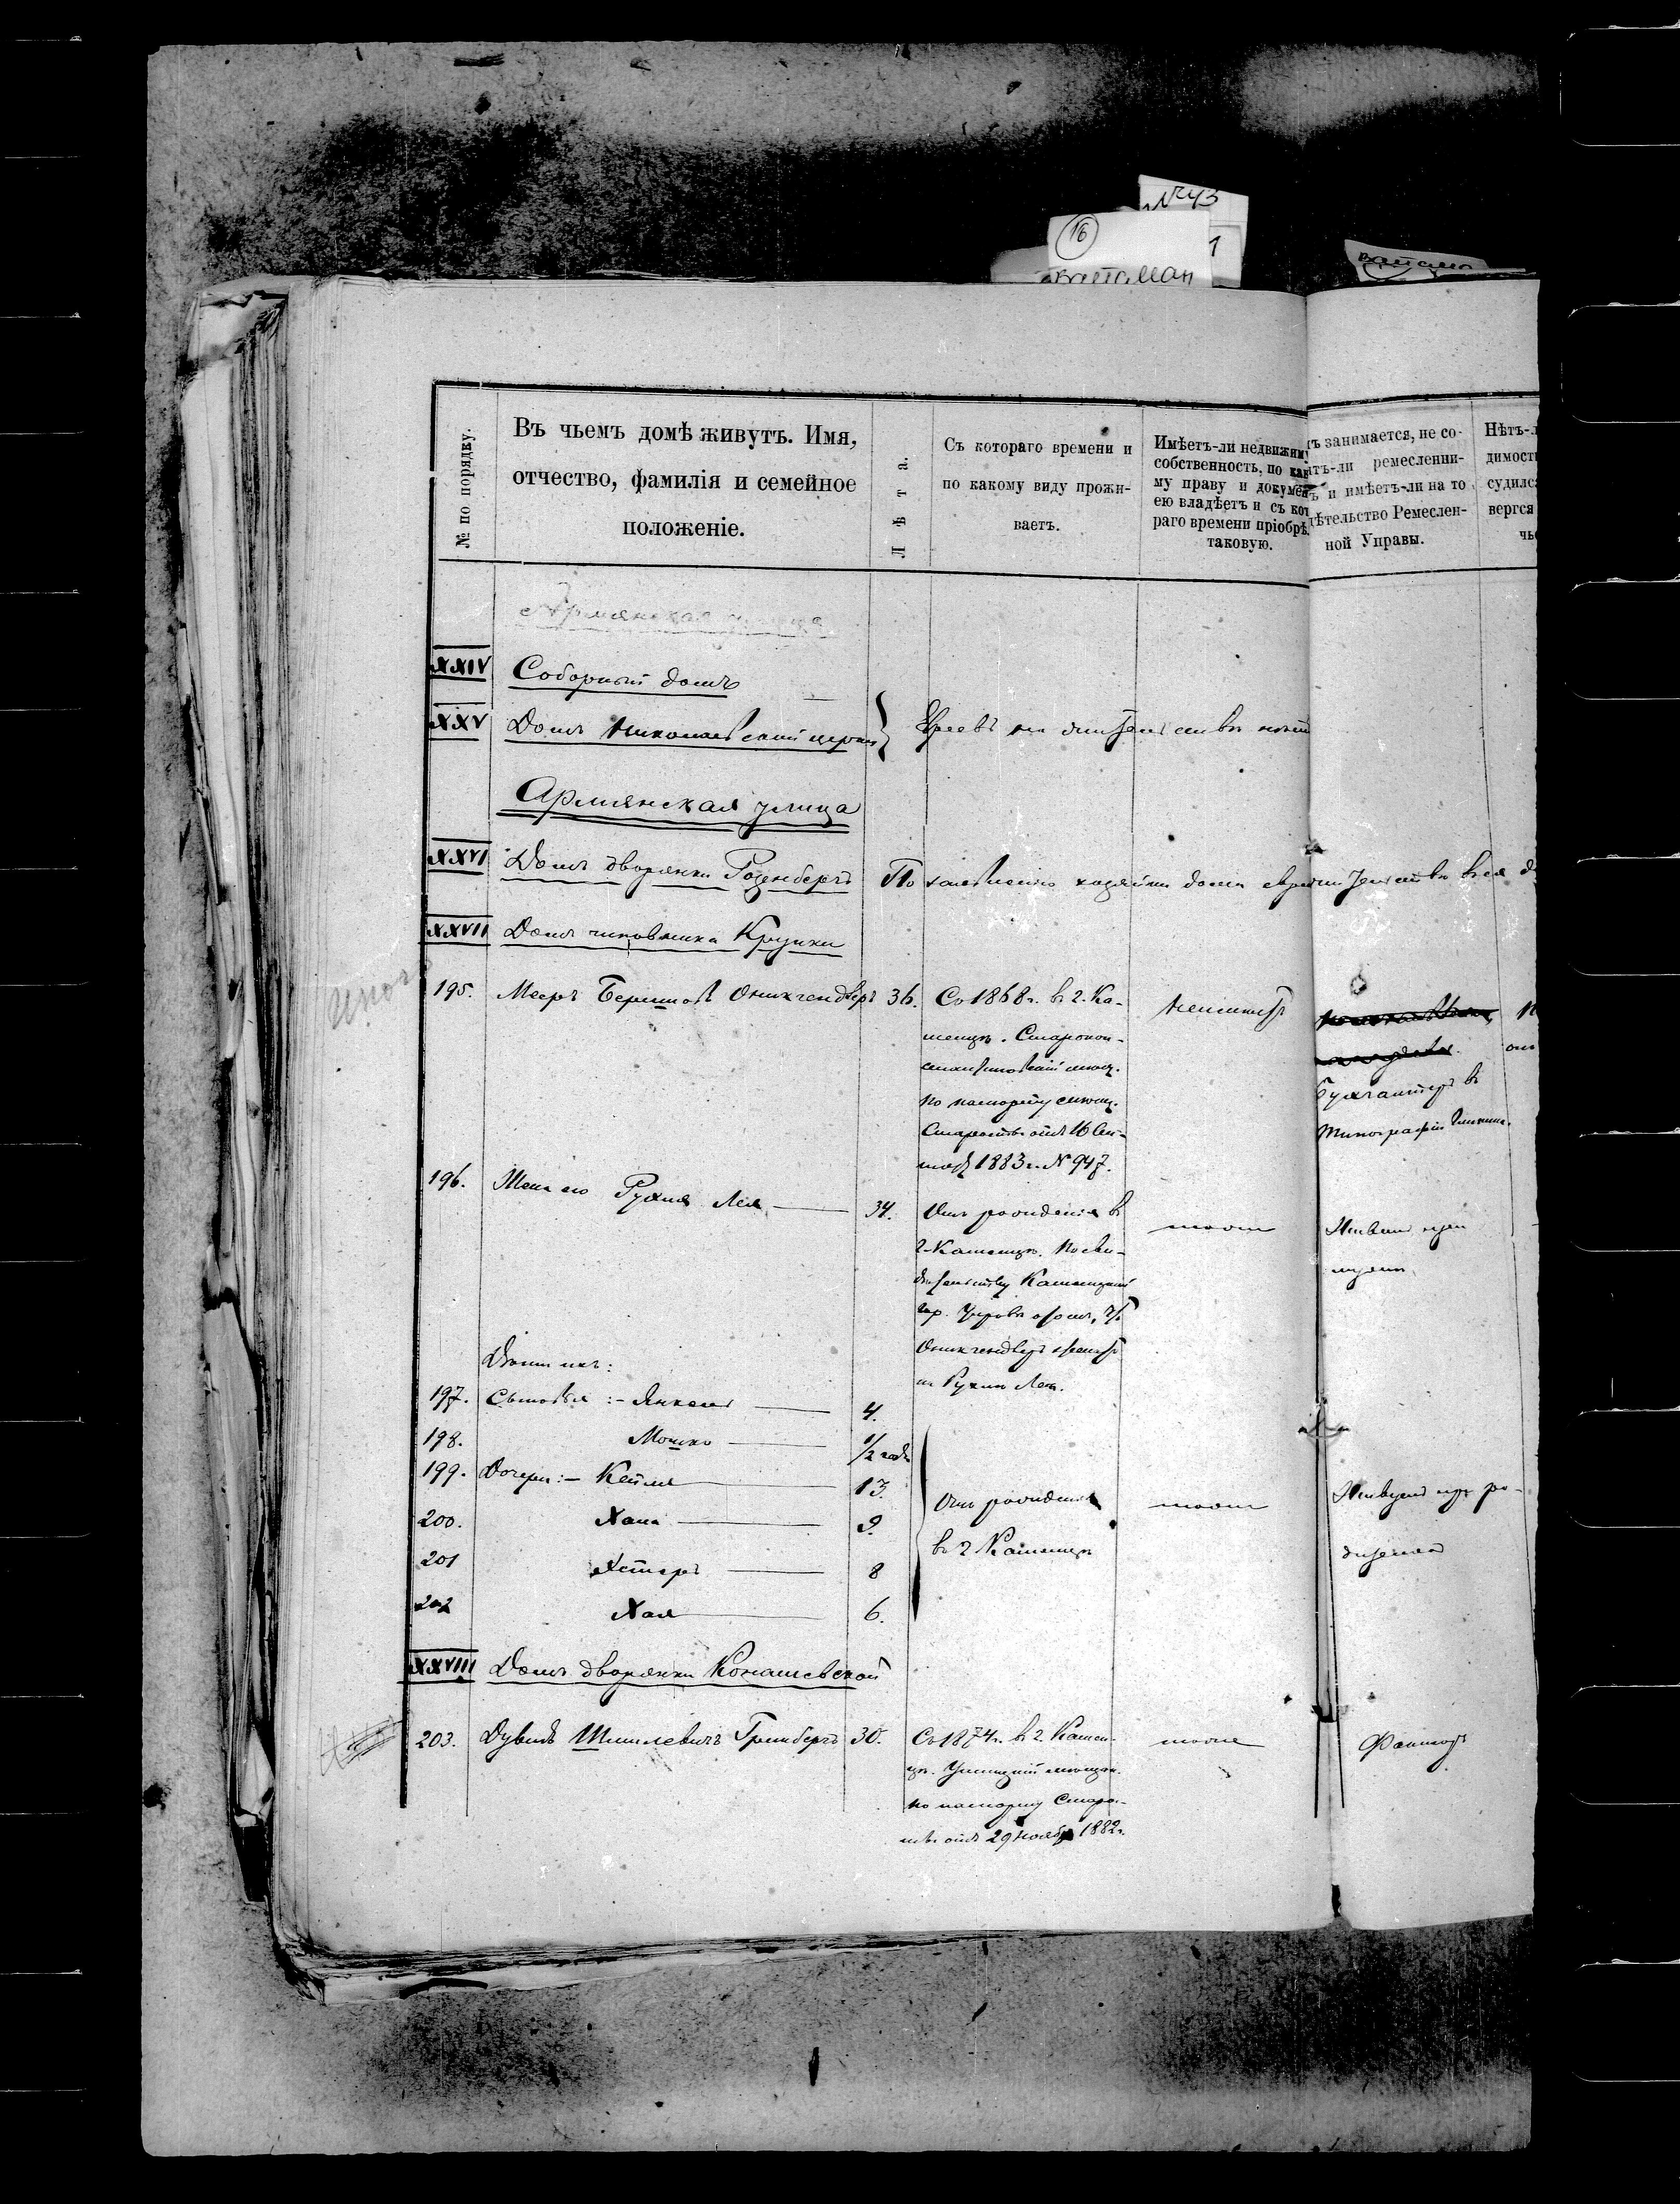 №43
16
1
ватаман
№ по порядку.
Въ чьемъ домѣ живутъ. Имя,
отчество, фамилія и семейное
положеніе.
Лѣта.
Съ котораго времени и
по какому виду прожи-
ваетъ.
Имѣетъ-ли недвижим
собственность, по как
му праву и докумен
ею владѣетъ и съ кот
раго времени пріобрѣ.
таковую.
ъ занимается, не со-
тъ-ли ремесленни-
ъ и имѣетъ-ли на то
дѣтельство Ремеслен-
ной Управы.
Нѣтъ-л
димости
судилс
вергся
чь
Армянская улица
XXIV Соборный домъ
XXV Домъ Николаевской церкви
Евреевъ на жительствѣ
Армянская улица
XXVI Домъ дворянки Розенбергъ По заявленію хозяйки дома
XXVII Домъ чиновника Крупки
195. Мееръ Берковъ 36. Съ 1868 г. въ г. Ка-
менцѣ. Старокон-
стантиновскій мѣщ.
по паспорту мѣщ.
Старосты отъ 16 Сен-
1883 г. № 947.
неимѣетъ
Бухгалтеръ въ
типографіи
196. Жена его Рухля Лея 34. Отъ рожденія въ
г. Каменцѣ. По сви-
дѣтельству Каменецкой
гор. Управы
и Рухля Лея.
тоже
Живетъ при
мужѣ
Дѣти ихъ:
197. Сыновья:- Янкель 4.
198. Мошко 1/2 года
199. Дочери:- Кейля 13.
200. Хана 9.
201 Эстеръ 8
202 Хая 6.
Отъ рожденія
въ г. Каменцѣ
тоже
Живутъ при ро-
дителяхъ
XXVIII Домъ дворянки Конашевской
203. Дувидъ Шмилевичъ Гринбергъ 30. Съ 1874 г. въ г. Камен-
цѣ. Ушицкій мѣщан.
по паспорту Старо-
сты отъ 29 Ноября 1882 г.
тоже
Факторъ